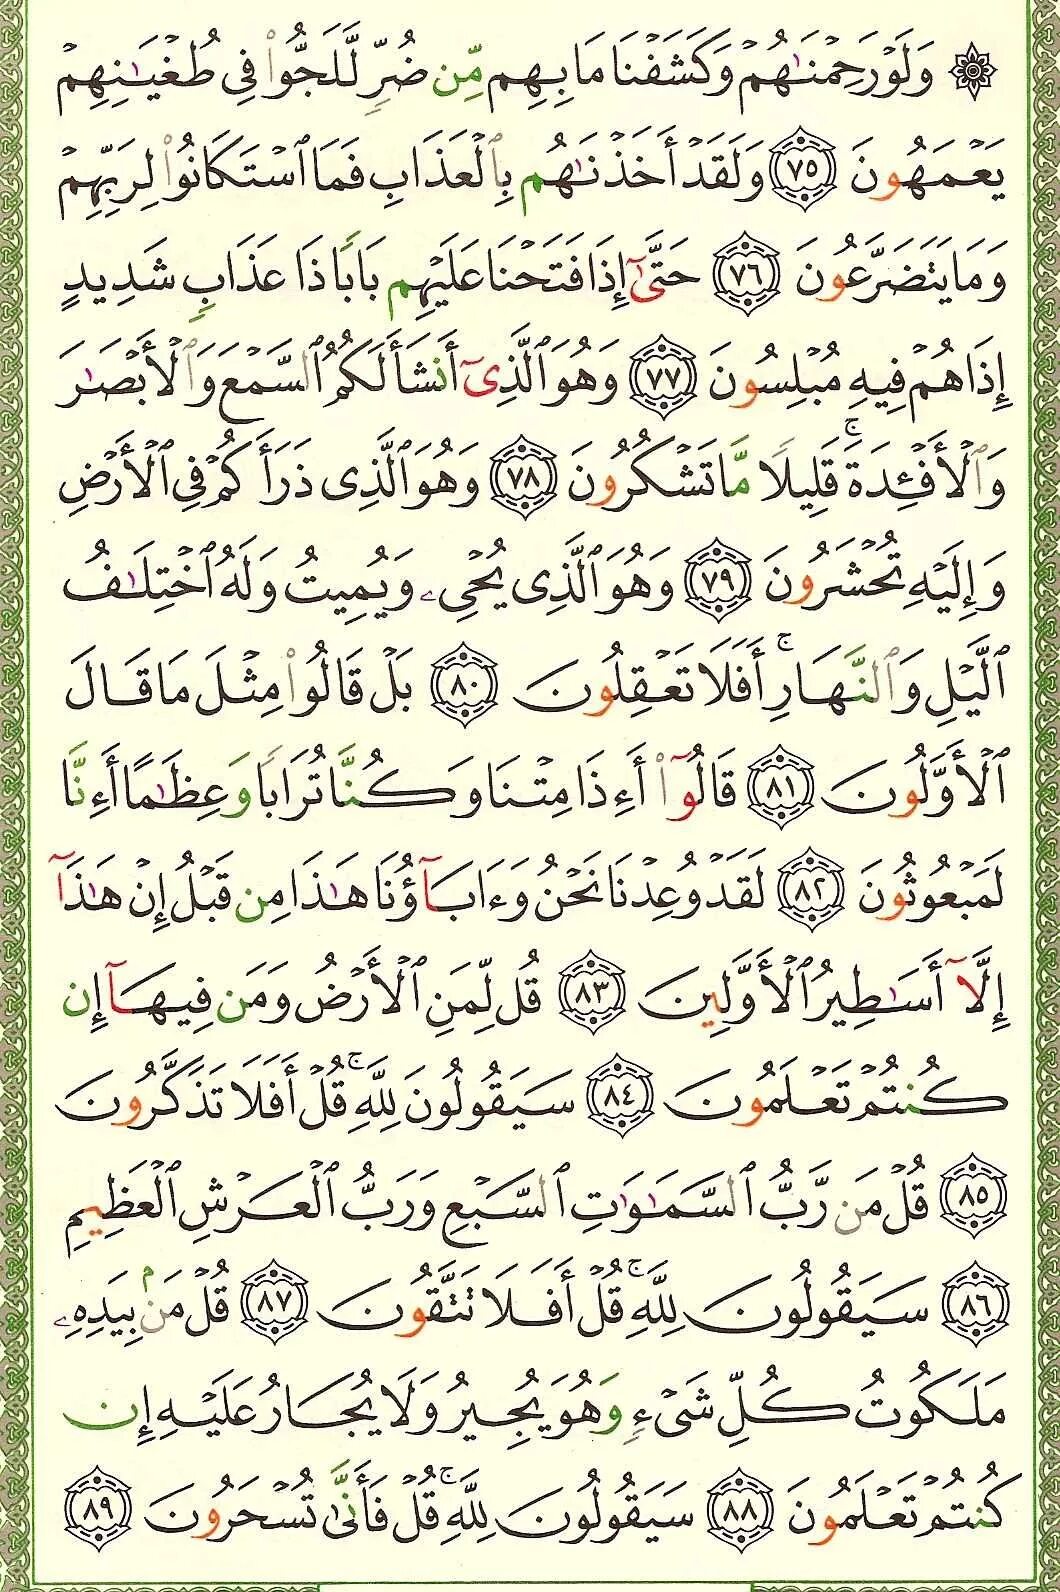 ۞ وَلَوْ رَحِمْنَٰهُمْ وَكَشَفْنَا مَا بِهِم مِّن ضُرٍّ لَّلَجُّوا۟ فِى طُغْيَٰنِهِمْ
يَعْمَهُونَ ٧٥ وَلَقَدْ أَخَذْنَٰهُم بِٱلْعَذَابِ فَمَا ٱسْتَكَانُوا۟ لِرَبِّهِمْ
وَمَا يَتَضَرَّعُونَ ٧٦ حَتَّىٰٓ إِذَا فَتَحْنَا عَلَيْهِم بَابًا ذَا عَذَابٍ شَدِيدٍ
إِذَا هُمْ فِيهِ مُبْلِسُونَ ٧٧ وَهُوَ ٱلَّذِىٓ أَنشَأَ لَكُمُ ٱلسَّمْعَ وَٱلْأَبْصَٰرَ
وَٱلْأَفْـِٔدَةَ ۚ قَلِيلًا مَّا تَشْكُرُونَ ٧٨ وَهُوَ ٱلَّذِى ذَرَأَكُمْ فِى ٱلْأَرْضِ
وَإِلَيْهِ تُحْشَرُونَ ٧٩ وَهُوَ ٱلَّذِى يُحْىِۦ وَيُمِيتُ وَلَهُ ٱخْتِلَٰفُ
ٱلَّيْلِ وَٱلنَّهَارِ ۚ أَفَلَا تَعْقِلُونَ ٨٠ بَلْ قَالُوا۟ مِثْلَ مَا قَالَ
ٱلْأَوَّلُونَ ٨١ قَالُوٓا۟ أَءِذَا مِتْنَا وَكُنَّا تُرَابًا وَعِظَٰمًا أَءِنَّا
لَمَبْعُوثُونَ ٨٢ لَقَدْ وُعِدْنَا نَحْنُ وَءَابَآؤُنَا هَٰذَا مِن قَبْلُ إِنْ هَٰذَآ
إِلَّآ أَسَٰطِيرُ ٱلْأَوَّلِينَ ٨٣ قُل لِّمَنِ ٱلْأَرْضُ وَمَن فِيهَآ إِن
كُنتُمْ تَعْلَمُونَ ٨٤ سَيَقُولُونَ لِلَّهِ ۚ قُلْ أَفَلَا تَذَكَّرُونَ
٨٥ قُلْ مَن رَّبُّ ٱلسَّمَٰوَٰتِ ٱلسَّبْعِ وَرَبُّ ٱلْعَرْشِ ٱلْعَظِيمِ
٨٦ سَيَقُولُونَ لِلَّهِ ۚ قُلْ أَفَلَا تَتَّقُونَ ٨٧ قُلْ مَنۢ بِيَدِهِۦ
مَلَكُوتُ كُلِّ شَىْءٍ وَهُوَ يُجِيرُ وَلَا يُجَارُ عَلَيْهِ إِن
كُنتُمْ تَعْلَمُونَ ٨٨ سَيَقُولُونَ لِلَّهِ ۚ قُلْ فَأَنَّىٰ تُسْحَرُونَ ٨٩